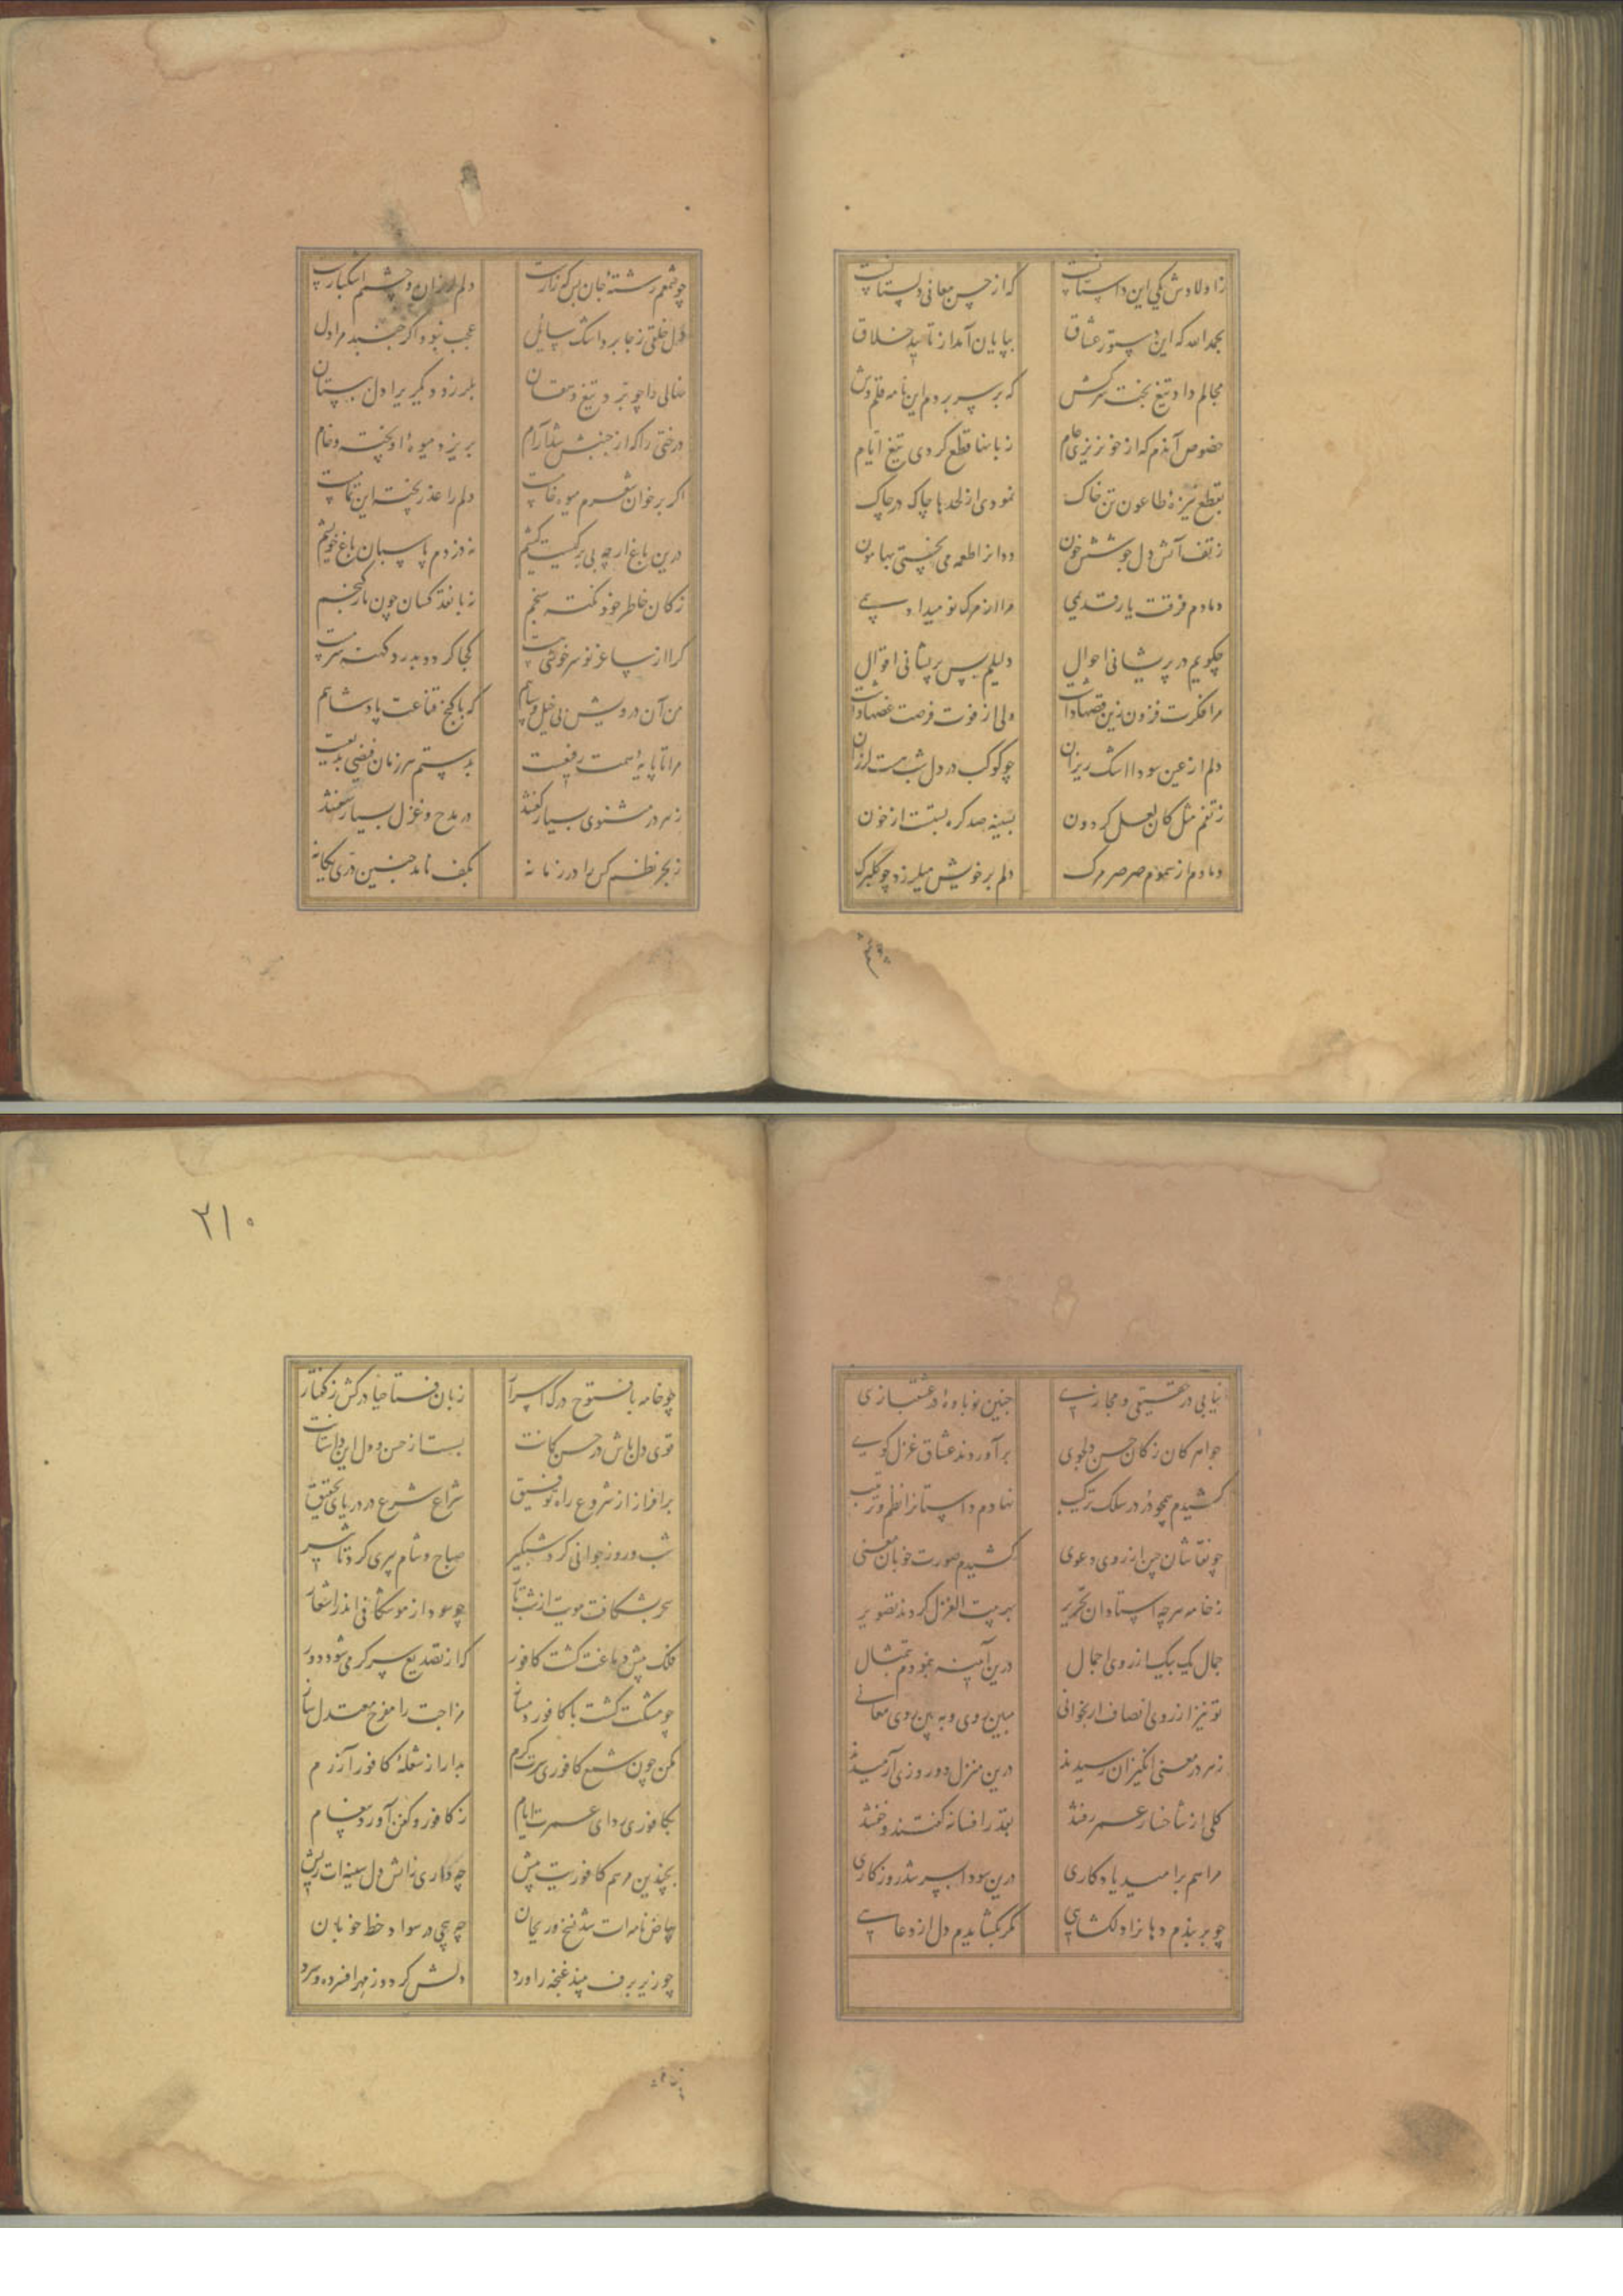 زاولادش یکی این داستانست که از حسن معانی دلستانست
بحمدالله که این دستور عشاق بپایان آمد از تایید خلاق
مجالم داد تیغ بخت سرکش که بر سر بردم این نامه قلم وش
خصوص آندم که از خونریزی عام زبانها قطع کردی تیغ ایام
بقطع نیزهٔ طاعون تن خاک نمودی از لحدها چاک در چاک
ز تف آتش دل جوشش خون ددانرا طعمه می پختی بهامون
دمادم فرقت یار قدیمی مرا از مرگ نو میداد بیمی
چگویم در پریشانی احوال دلیلم بس پریشانی اقوال
مرا فکرت فزون زین قصها داشت ولی از فوت فرصت غصها داشت
دلم از عین سودا اشک ریزان چو کوکب در دل شب هست لرزان
مثل کان لعل گردون بسینه صد گره بستست از خون
دمادم از سموم صرصر مرگ دلم بر خویش میلرزد چو گلبرگ
چو شمعم رشتهٔ جان بس که زارست دلم لرزان و چشمم اشکبارست
دل خلقی ز جا برد اشک سایل عجب نبود اگر جنبد مرا دل
نهالی را چو برد تیغ دهقان بلرزد دیگریرا دل ببستان
درختی را که از جنبش شد آرام بریزد میوهٔ او پخته و خام
اگر بر خوان شعرم میوه خامست دلم را عذر پخته این تمامست
درین باغ ارچه بی برگیست کیشم نه دزدم پاسبان باغ خویشم
ز کان خاطر خود نکته سنجم نه با نقد کسان چون مار گنجم
کرا از ساغر نو سرخوشی هست کجا گردد بدرد کهنه سرمست
من آن درویش بی خیل و سپاهم که با گنج قناعت پادشاهم
مرا تا پایهٔ همت رفیعست بدستم هر زمان فیضی بدیعست
ز هر در مثنوی بسیار گفتند در مدح و غزل بسیار سفتند
ز بحر نظم کس را در زمانه بکف نامد چنین دری یگانه
نیابی در حقیقی و مجازی چنین نوباوهٔ در عشقبازی
جواهر کان ز کان حسن دلجوی برآوردند عشاق غزل گوی
کشیدم همچو در در سلک ترکیب نهادم داستانرا نظم و ترتیب
چو نقاشان چین از روی دعوی کشیدم صورت خوبان معنی
ز خامه هرچه استادان تحریر بهر بیت الغزل کردند تصویر
جمال یک بیک از روی اجمال درین آیینه بنمودم تمثال
تو نیز از روی انصاف ار بخوانی مبین روی و ببین روی معانی
ز هر در معنی انگیزان رسیدند درین منزل دو روزی آرمیدند
گلی از شاخسار عمر رفتند بقدر افسانه گفتند و خفتند
مرا هم بر امید یادگاری درین سودا بسر شد روزگاری
چو بر بندم دهانرا دلگشایی مگر بگشایدم دل از دعایی
۲۱۰
چو خامه با فتوح درک اسرار زبان فتاحیا درکش ز گفتار
قوی دل باش در حسن کانت بست از حسن و دل این داستانت
برافراز از شروع راه توفیق شراع شرع در دریای تحقیق
شب و روز جوانی کرد شبگیر صباح و شام پیری کرد تاثیر
سحر بشکافت مویت از شب تار چو سود از موشکافی اندر اشعار
فلک مشک دماغت گشت کافور که از تصدیع سرگرمی شود دور
چو مشکت گشت با کافور دمساز مزاجت را مفرح معتدل ساز
مکن چون شمع کافوری سرت گرم بدار از شعلهٔ کافور آزرم
بکافوری ردای عمرت ایام ز کافور و کفن آورد پیغام
بچندین مرهم کافوریت پیش چه داری ز آتش دل سینه ات ریش
بیاض نامه ات شد نسخ و ریحان چه پیچی در سواد خط خوبان
چو زیر برف بیند غنچه را ورد دلش گردد ز مهر افسرده و سرد